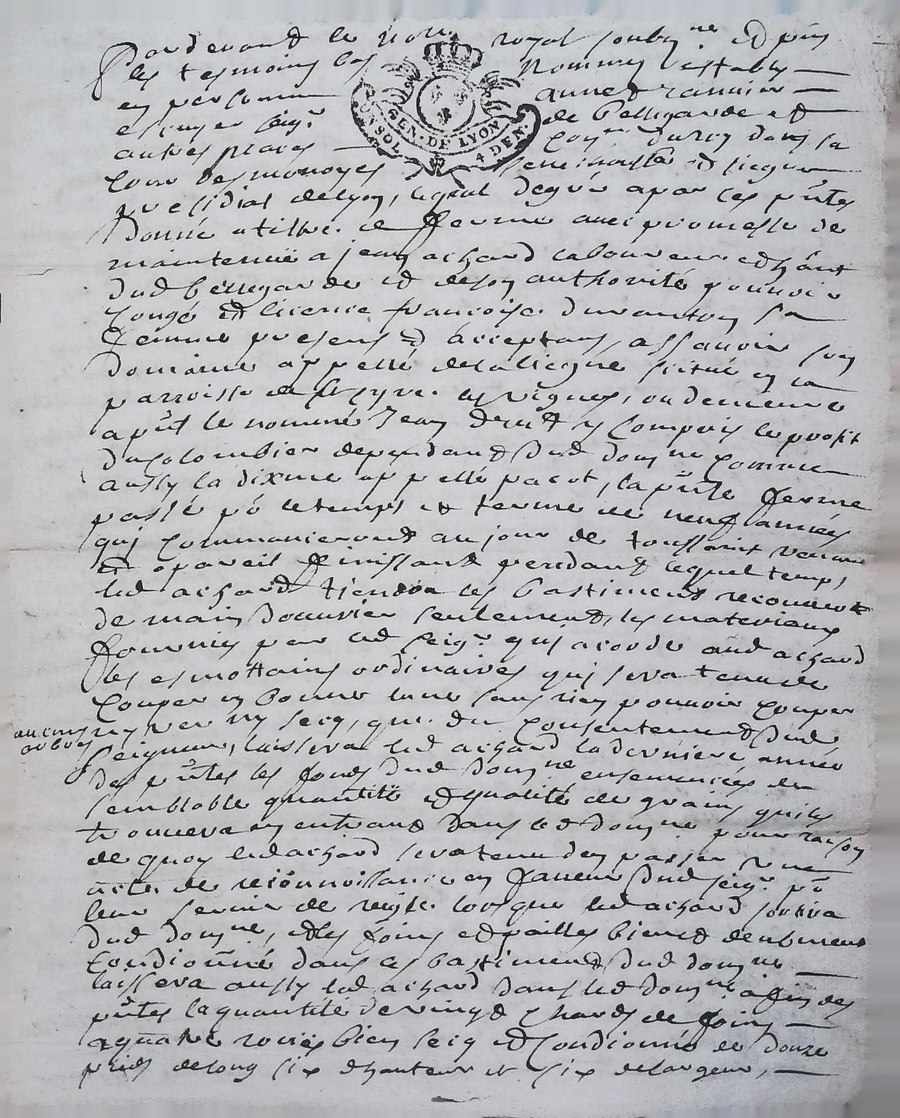 Pardevant le no.re royal soubz.ne Et pnts
les tesmoins bas nommes establis
en personne anne
escuyer seigr de bellegarde et
autres places Conser du roy dans sa
Cour des monoyes senechaussée et siege
UN SOL GEN. DE LYON 4 DEN.
presidial de Lyon, lequel de gré a par ces pntes
donné a tiltre de ferme avec promesse de
maintenir a jean achard laboureur et hant
dud bellegarde et de son authorité pouvoir
congé et licence francoise duranton sa
femme presens et acceptans, assavoir son
domaine appellé de scitué en la
parroisse de St Cyre les vignes, ou demeure
a pnt le nommé Jean y compris le profit
du colombier dependant dud domne comme
aussy la dixme appellé pacot, la pnte ferme
passé po le temps et terme de neuf années
quj commanceront au jour de toussaint venant
et a pareil finissant pendant lequel temps
led achard tiendra les bastiments recouverts
de main douvrier seulement, les materiaux
fournis par led seigr quj acorde aud achard
les esmottains ordinaires quj sera tenu de
couper en bonne lune sans rien pouvoir couper
aucuns arbres
ny ver ny secq, que du consentement dud
seigneur, laissera led achard la derniere année
des pntes les fonds dud domne ensemencés de
semblable quantité et qualité de grains quil
trouvera en entrant dans led domne pour raison
de quoy led achard sera tenu den passer une
acte de reconnoissance en faveur dud seigr po
leur servir de regle lorsque led achard sortira
dud domne, et les foins et pailles bien et deubment
condionné dans les bastiments dud domne
laissera aussy led achard dans led domne a fin des
pntes la quantité de vingt chards de foin
a quatre roues bien secq et condionné de douze
pieds de long six dhauteur et six de largeur,